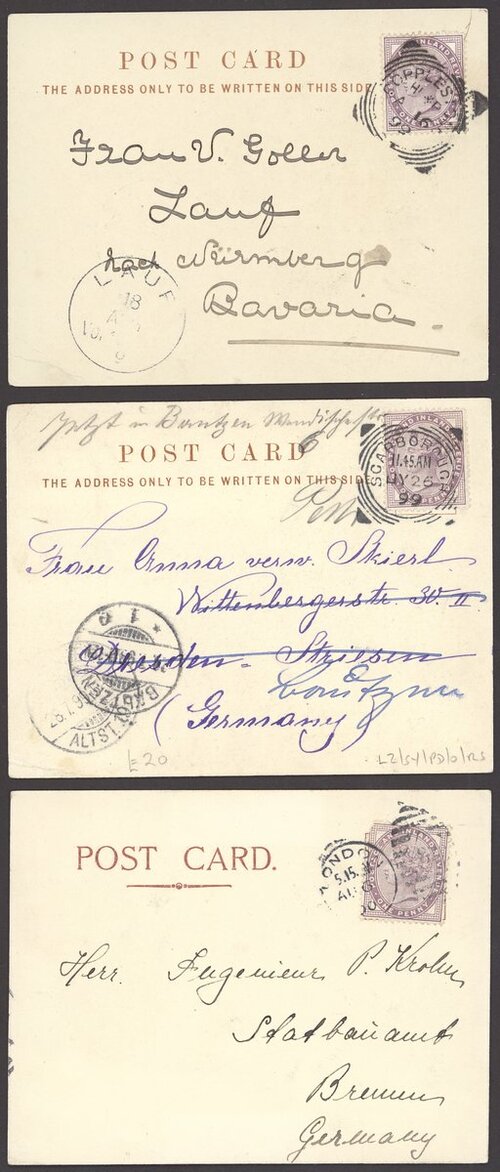 POST CARD
THE ADDRESS ONLY TO BE WRITTEN ON THIS SIDE
16
99
Frau V. Goller
Lauf
nach Nürmberg
Bavaria.
LAUF
18
Jetzt in Bautzen
POST CARD
THE ADDRESS ONLY TO BE WRITTEN ON THIS SIDE
SCARBOROUGH
11.45AM
JY 26
99
Frau Anna verw. Skierl.
Wittenbergerstr. 30. II.
Dresden - Striesen
Bautzen
(Germany)
BAUTZEN
ALTST.
£20
POST CARD.
LONDON
5.15
ONE PENNY
Herr. Ingenieur P. Krohn
Statbauamt
Bremen
Germany